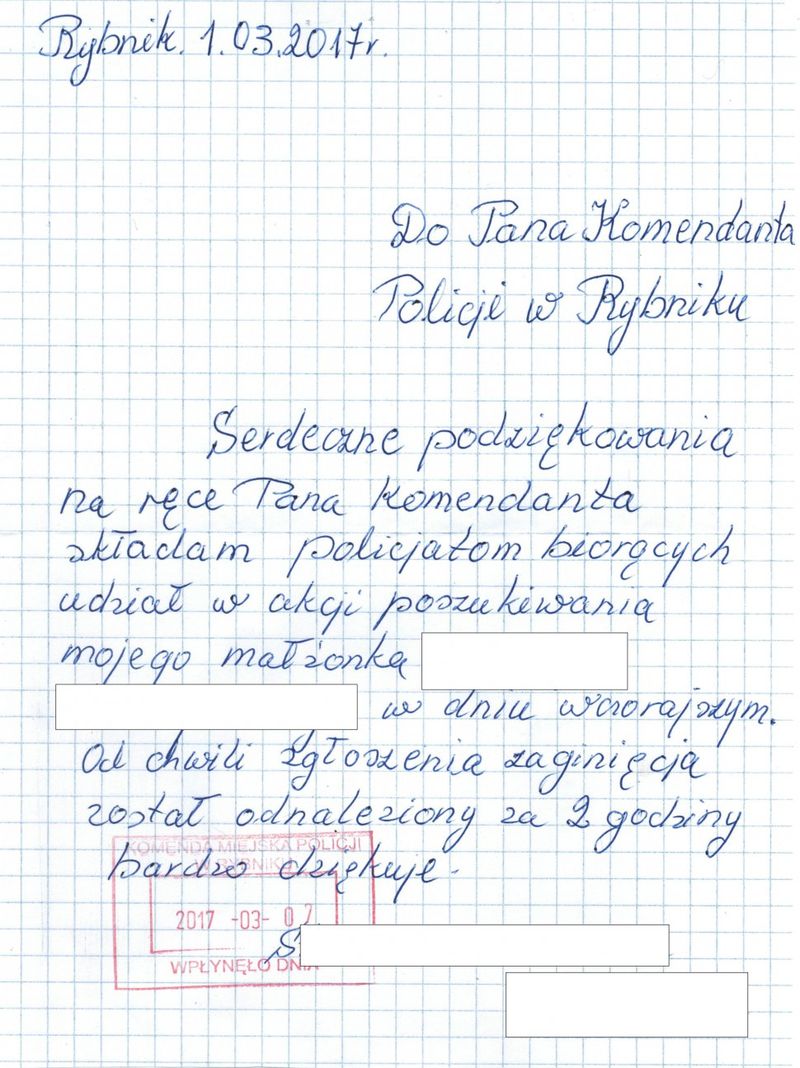 Rybnik. 1.03.2017r.
Do Pana Komendanta
Policji w Rybniku
Serdeczne podziękowania
na ręce Pana Komendanta
składam policjatom biorących
udział w akcji poszukiwania
mojego małżonka
w dniu wczorajszym.
Od chwili zgłoszenia zaginięcia
został odnaleziony za 2 godziny
bardzo dziękuje.
KOMENDA MIEJSKA POLICJI
W RYBNIKU
2017 -03- 07
WPŁYNĘŁO DNIA
S